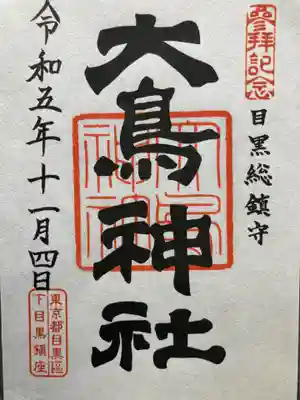 參拝記念
目黒総鎮守
大鳥神社
令和五年十一月四日
東京都目黒區
下目黒鎮座